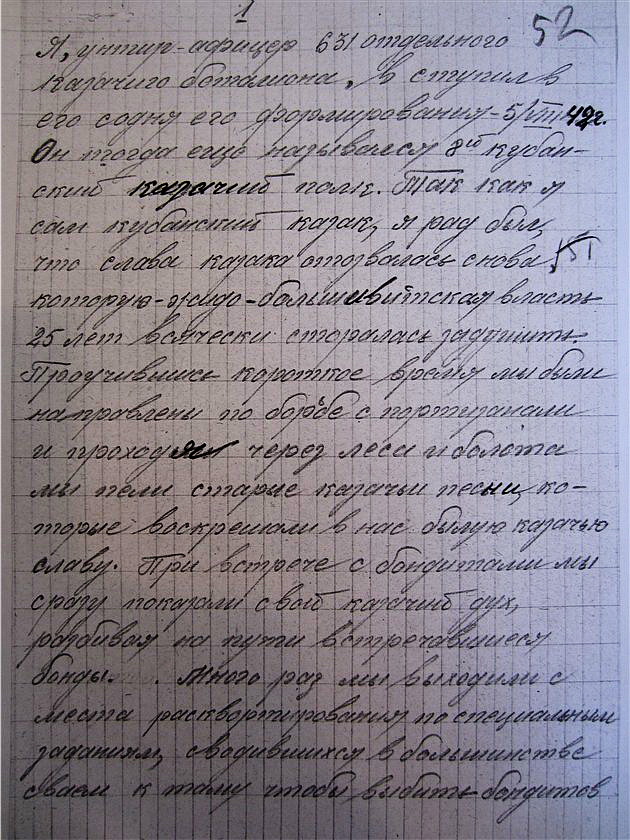 1
52
Я, унтир-афицер 631 отдельного
казачиго баталиона, в ступил в
его содня его формирования - 5/VIII 42г.
Он тогда ещо назывался 8ый кубан-
ский казачий полк. Так как я
сам кубанский казак, я рад был,
что слава казака отозвалась снова,
которую-жидо-большивитская власть
25 лет всячески сторалась задушить.
Проучившись короткое время мы были
направлены по борьбе с портизанами
и проходя через леса и болота
мы пели старые казачьи песни, ко-
торые воскрешали в нас былую казачью
славу. При встрече с бондитами мы
сразу показали свой казачий дух,
разбивая на пути встречавшиеся
бонды. Много раз мы выходили с
места расквортирования, по специальным
заданиям, сводившихся в большинстве
сваем к таму чтобы выбить бондитов